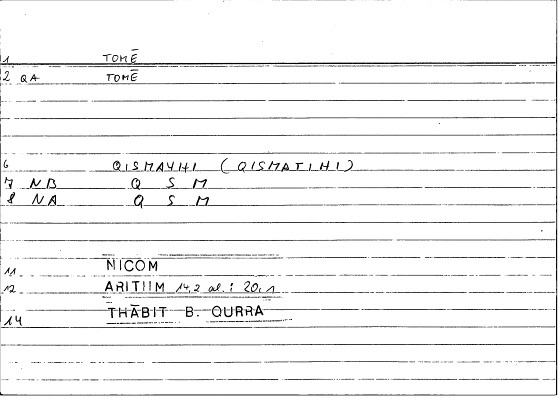 1 TOMĒ
2 QA TOMĒ
6 QISMAYHI (QISMATIHI)
7 NB Q S M
8 NA Q S M
11 NICOM
12 ARITIIM 14,2 al.: 20,1
14 THĀBIT B. QURRA